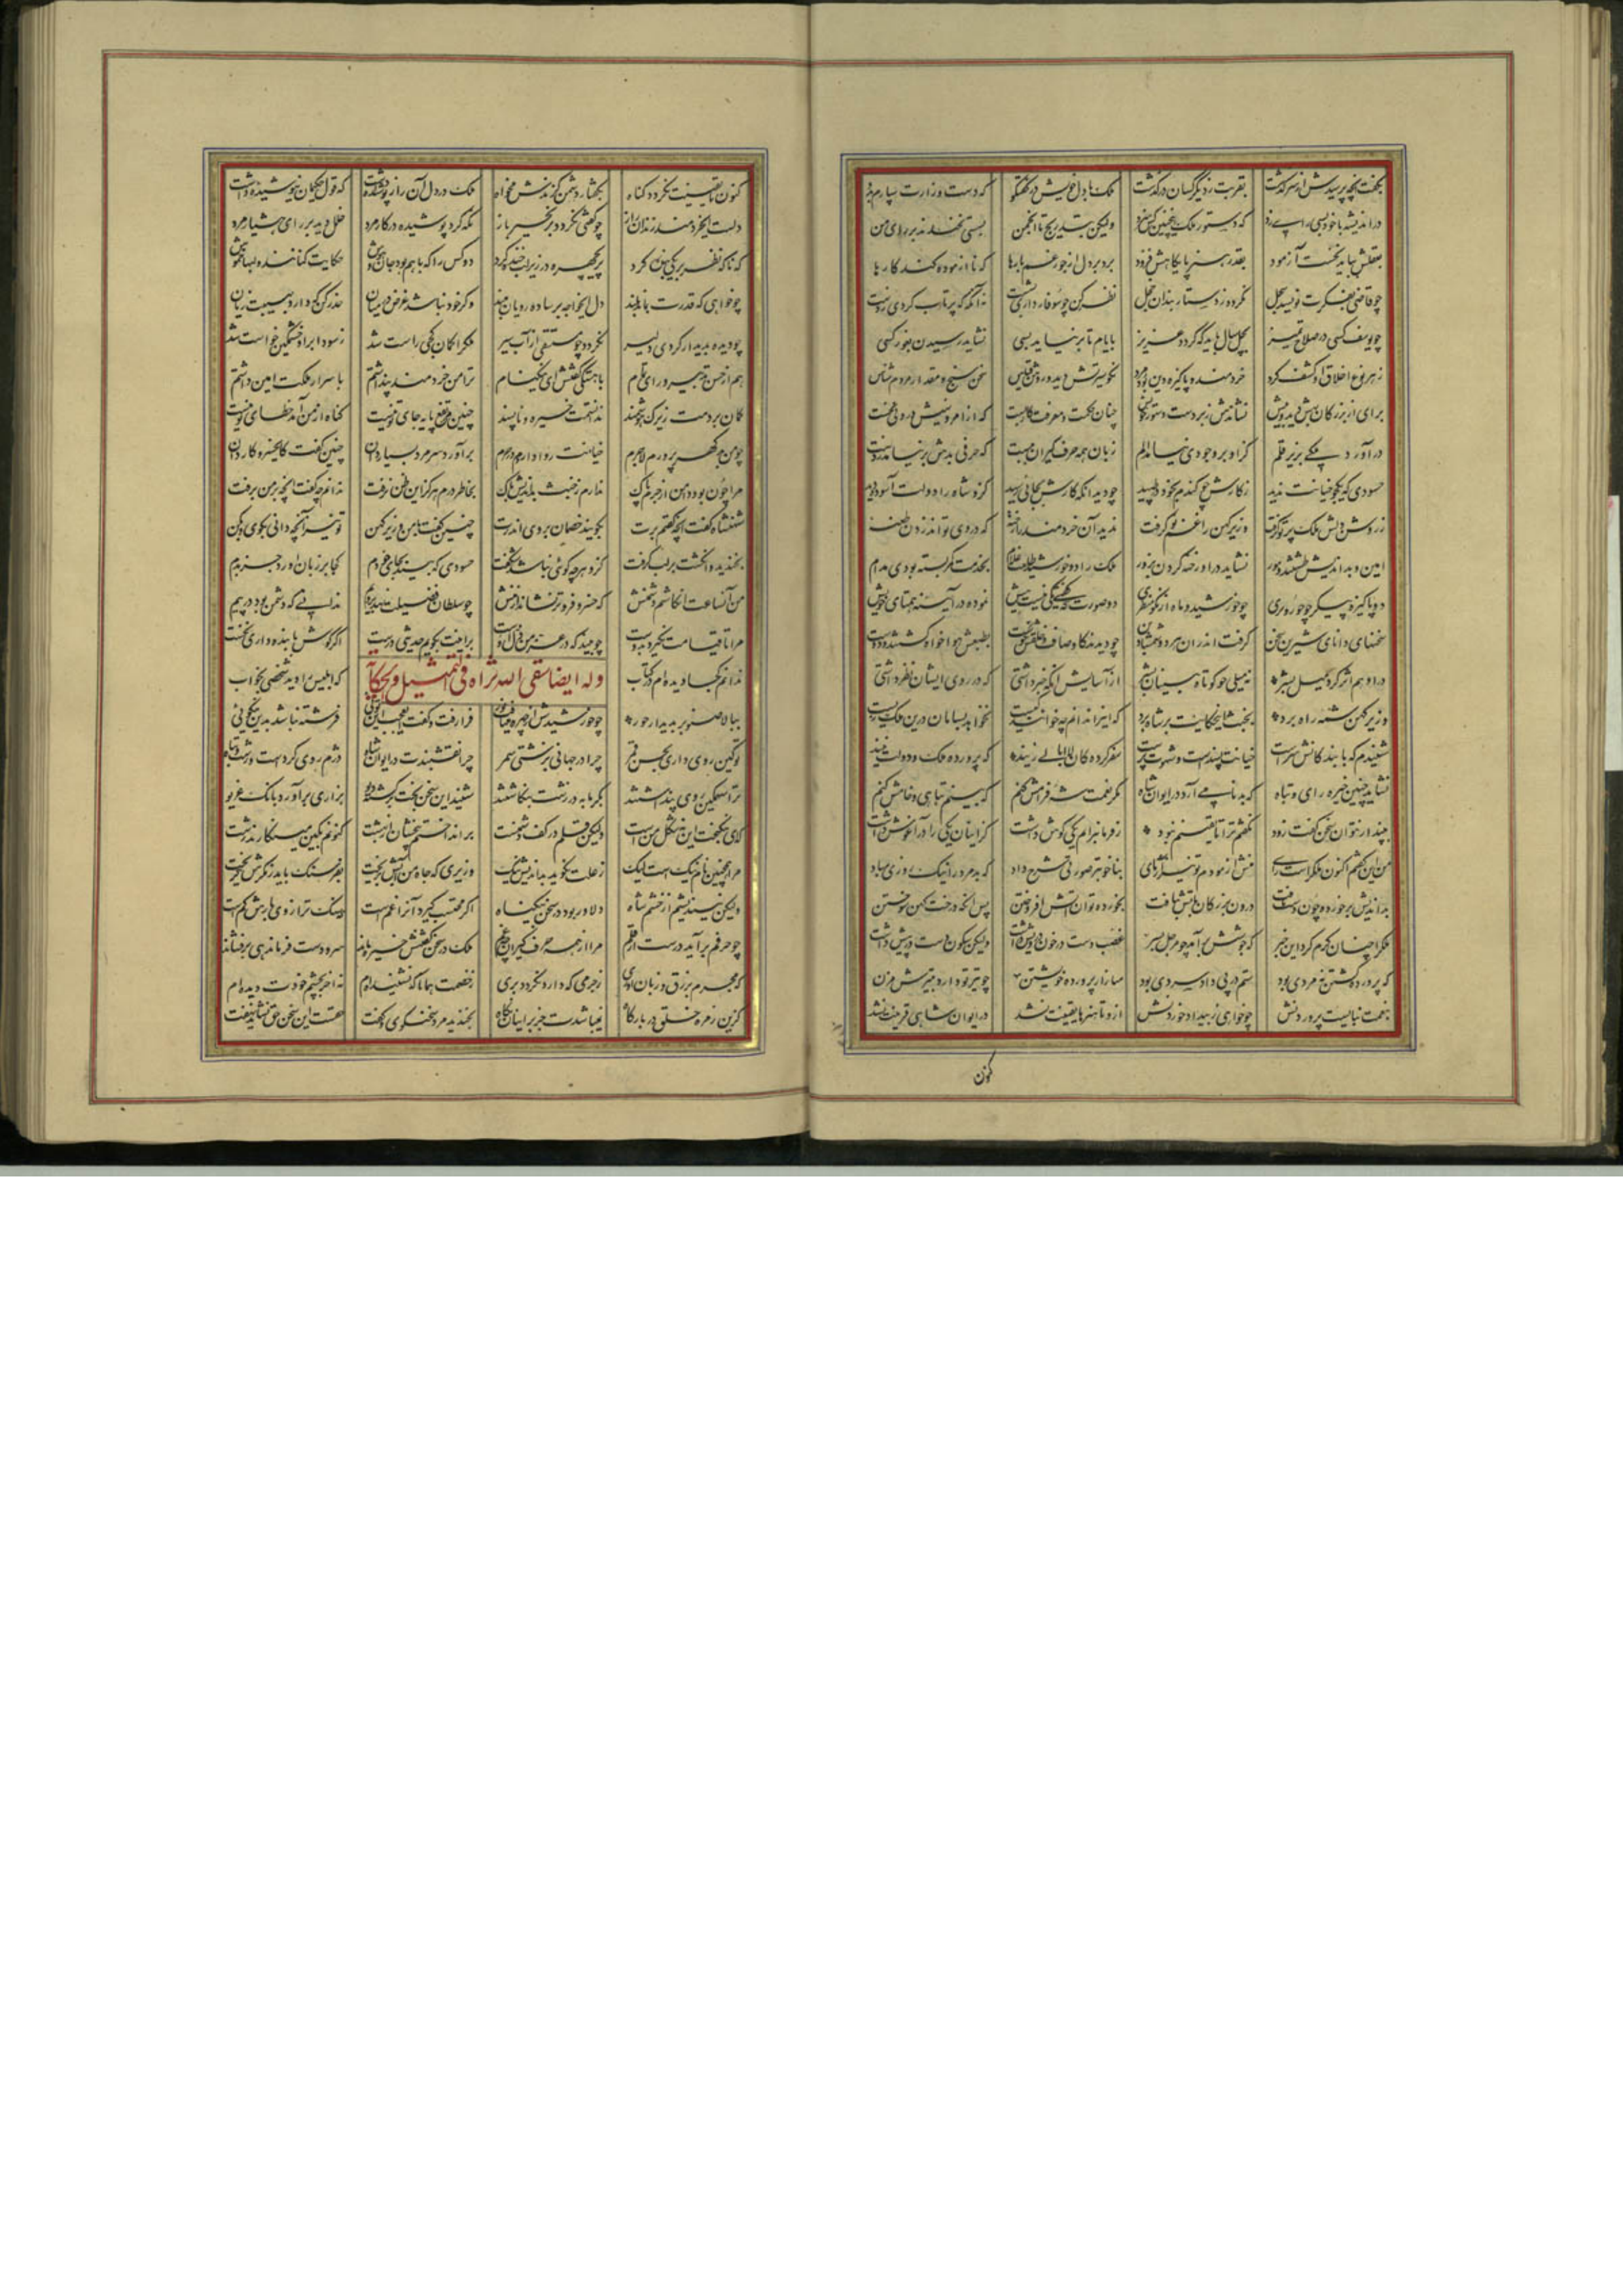 بگفت آنچه پرسیدش از سرگذشت بقربت ز دیگر کسان درگذشت ملک با دل خویش در گفتگو که دست وزارت سپارم بدو
ولیکن بتدریج تا انجمن بسستی نخندند بر رای من
بعقلش بباید نخست آزمود بقدر هنر پایگاهش فزود برد بر دل از جور غم بارها که ناآزموده کند کارها
چو قاضی بفکرت نویسد سجل نگردد ز دستاربندان خجل نظر کن چو سوفار داری بشست نه آنگه که پرتاب کردی ز دست
چو یوسف کسی در صلاح و تمیز بچل سال باید که گردد عزیز بایام تا بر نیاید بسی نشاید رسیدن بغور کسی
ز هر نوع اخلاق او کشف کرد خردمند و پاکیزه دین بود مرد نکو سیرتش دید و روشن قیاس سخن سنج و مقدار مردم شناس
برای از بزرگان بهش دید و بیش نشاندش زبردست دستور چنان حکمت و معرفت کار بست که از امر و نهیش درونی نخست
درآورد ملکی بزیر قلم کزو بر وجودی نیامد الم زبان همه حرف گیران ببست که حرفی بدش بر نیامد ز دست
حسودی که یکجو خیانت ندید ز کارش چو گندم بخود وطپید
ز روشن دلش ملک پرتو گرفت وزیر کهن را غم نو گرفت ندید آن خردمند را رخنه که در وی تواند زدن طعنه
امین و بداندیش طشتند و مور نشاید در او رخنه کردن بزور ملک را دو خورشید طلعت غلام بخدمت کمر بسته بودی مدام
دو پاکیزه پیکر چو حور و پری چو خورشید و ماه از نکو منظری دو صورت که گفتی یکی نیست بیش نموده در آیینه همتای خویش
سخنهای دانای شیرین سخن گرفت اندر آن هر دو شمشاد بن چو دیدند کاوصاف و خلقش نکوست بطبعش هواخواه گشتند و دوست
در او هم اثر کرد میل بشر نه میلی چو کوتاه بینان بشر از آسایش آنگه خبر داشتی که در روی ایشان نظر داشتی
وزیر کهن شمه راه برد بخبث این حکایت بر شاه برد که اینرا ندانم چه خوانند و کیست نخواهد بسامان درین ملک زیست
شنیدم که با بندگانش سرست خیانت پسندست و شهوت پرست سفر کرده گان لاابالی زیند که پرورده ملک و دولت نیند
نشاید چنین خیره رای و تباه که بدنامی آرد در ایوان شاه مگر نعمت شه فرامش کنم که بینم تباهی و خامش کنم
بپندار نتوان سخن گفت زود نگفتم ترا تا یقینم نبود ز فرمانبرانم یکی گوش داشت کز اینان یکی را در آغوش داشت
من این گفتم اکنون ملکراست رای منش آزمودم تو نیز آزمای بناخوبتر صورتی شرح داد که بد مرد را نیک روزی مباد
بداندیش بر خورده چون دست یافت درون بزرگان بآتش بتافت بخورده توان آتش افروختن پس آنگه درخت کهن سوختن
ملکرا چنان گرم کرد این خبر که جوشش برآمد چو مرجل بسر غضب دست در خون درویش داشت ولیکن سکون دست در پیش داشت
که پرورده کشتن نه مردی بود ستم در پی داد سردی بود میازار پرورده خویشتن چو تیر تو دارد بتیرش مزن
بنعمت نبایست پروردنش چو خواهی ببیداد خوردنش ازو تا هنرها یقینت نشد در ایوان شاهی قرینت نشد
کنون
کنون تا یقینت نگردد گناه بگفتار دشمن گزندش مخواه ملک در دل آن راز پوشیده داشت که قول حکیمان نیوشیده داشت
دلست ایخردمند زندان راز چو گفتی نگردد بزنجیر باز نگه کرد پوشیده در کار مرد خلل دید در رای هشیار مرد
که ناگه نظر بر یکی بنده کرد پریچهره در زیر لب خنده کرد دو کس را که با هم بود جان و هوش حکایت کنانند و لبها خموش
چو خواهی که قدرت بماند بلند دل ایخواجه بر ساده رویان مبند وگر خود نباشد غرض در میان حذر کن که دارد بهیبت زیان
چو دیده بدیدار کردی دلیر نگردد چو مستسقی از آب سیر ملکرا گمان کجی راست شد ز سودا بر او خشمگین خواست شد
هم از حسن تدبیر و رای تمام بآهستگی گفتش ای نیکنام ترا من خردمند پنداشتم باسرار ملکت امین داشتم
گمان بردمت زیرک و هوشمند ندانستمت خیره و ناپسند چنین مرتفع پایه جای تو نیست گناه از من آمد خطای تو نیست
چو من بدگهر پرورم لاجرم خیانت روا داردم در حرم برآورد سر مرد بسیاردان چنین گفت کایخسرو کاردان
مرا چون بود دامن از جرم پاک ندارم ز خبث بداندیش باک بخاطر درم هرگز این ظن نرفت ندانم چه گفت آنچه بر من برفت
شهنشاه گفت آنچه گفتم برت بگویند خصمان بروی اندرت چنین گفت با من وزیر کهن تو نیز آنچه دانی بگوی و بکن
بخندید و انگشت بر لب گرفت کزو هر چه گوئی نباشد شگفت حسودی که بیند بجای خودم کجا بر زبان آورد جز بدم
من آنساعت انگاشتم دشمنش که خسرو فروتر نشاند از منش چو سلطان فضیلت نهد بر ویم ندانی که دشمن بود در پیم
مرا تا قیامت نگیرد بدوست چو بیند که در عز من ذل اوست برینت بگویم حدیثی درست اگر گوش با بنده داری نخست
وله ایضا سقی الله ثراه فی التمثیل والحکایة
ندانم کجا دیده‌ام در کتاب که ابلیس را دید شخصی بخواب
ببالا صنوبر بدیدار حور چو خورشیدش از چهره میتافت نور فرا رفت و گفت ای عجب این توئی فرشته نباشد بدین نیکوئی
تو کین روی داری بحسن قمر چرا در جهانی بزشتی سمر چرا نقشبندت در ایوان شاه دژم روی کردست و زشت و تباه
ترا سهمگین روی پنداشتند بگرمابه در زشت بنگاشتند شنید این سخن بخت برگشته دیو بزاری برآورد بانگ و غریو
که ای نیکبخت این نه شکل منست ولیکن قلم در کف دشمنست برانداختم بیخشان از بهشت کنونم بکین مینگارند زشت
مرا همچنین نام نیک است لیک ز علت نگوید بداندیش نیک وزیری که جاه من آبش بریخت بفرسنگ باید ز مکرش گریخت
ولیکن نیندیشم از خشم شاه دلاور بود در سخن بیگناه اگر محتسب گیرد آنرا غمست که سنگ ترازوی بارش کم است
چو حرفم برآید درست از قلم مرا از همه حرف گیران چه غم ملک در سخن گفتنش خیره ماند سر دست فرماندهی برفشاند
که مجرم بزرق و زبان آوری ز جرمی که دارد نگردد بری ز خصمت همانا که نشنیده‌ام نه آخر بچشم خودت دیده‌ام
کزین زمره خلق در بارگاه نمیباشدت جز بر اینان نگاه بخندید مرد سخنگوی و گفت حقست این سخن حق نشاید نهفت